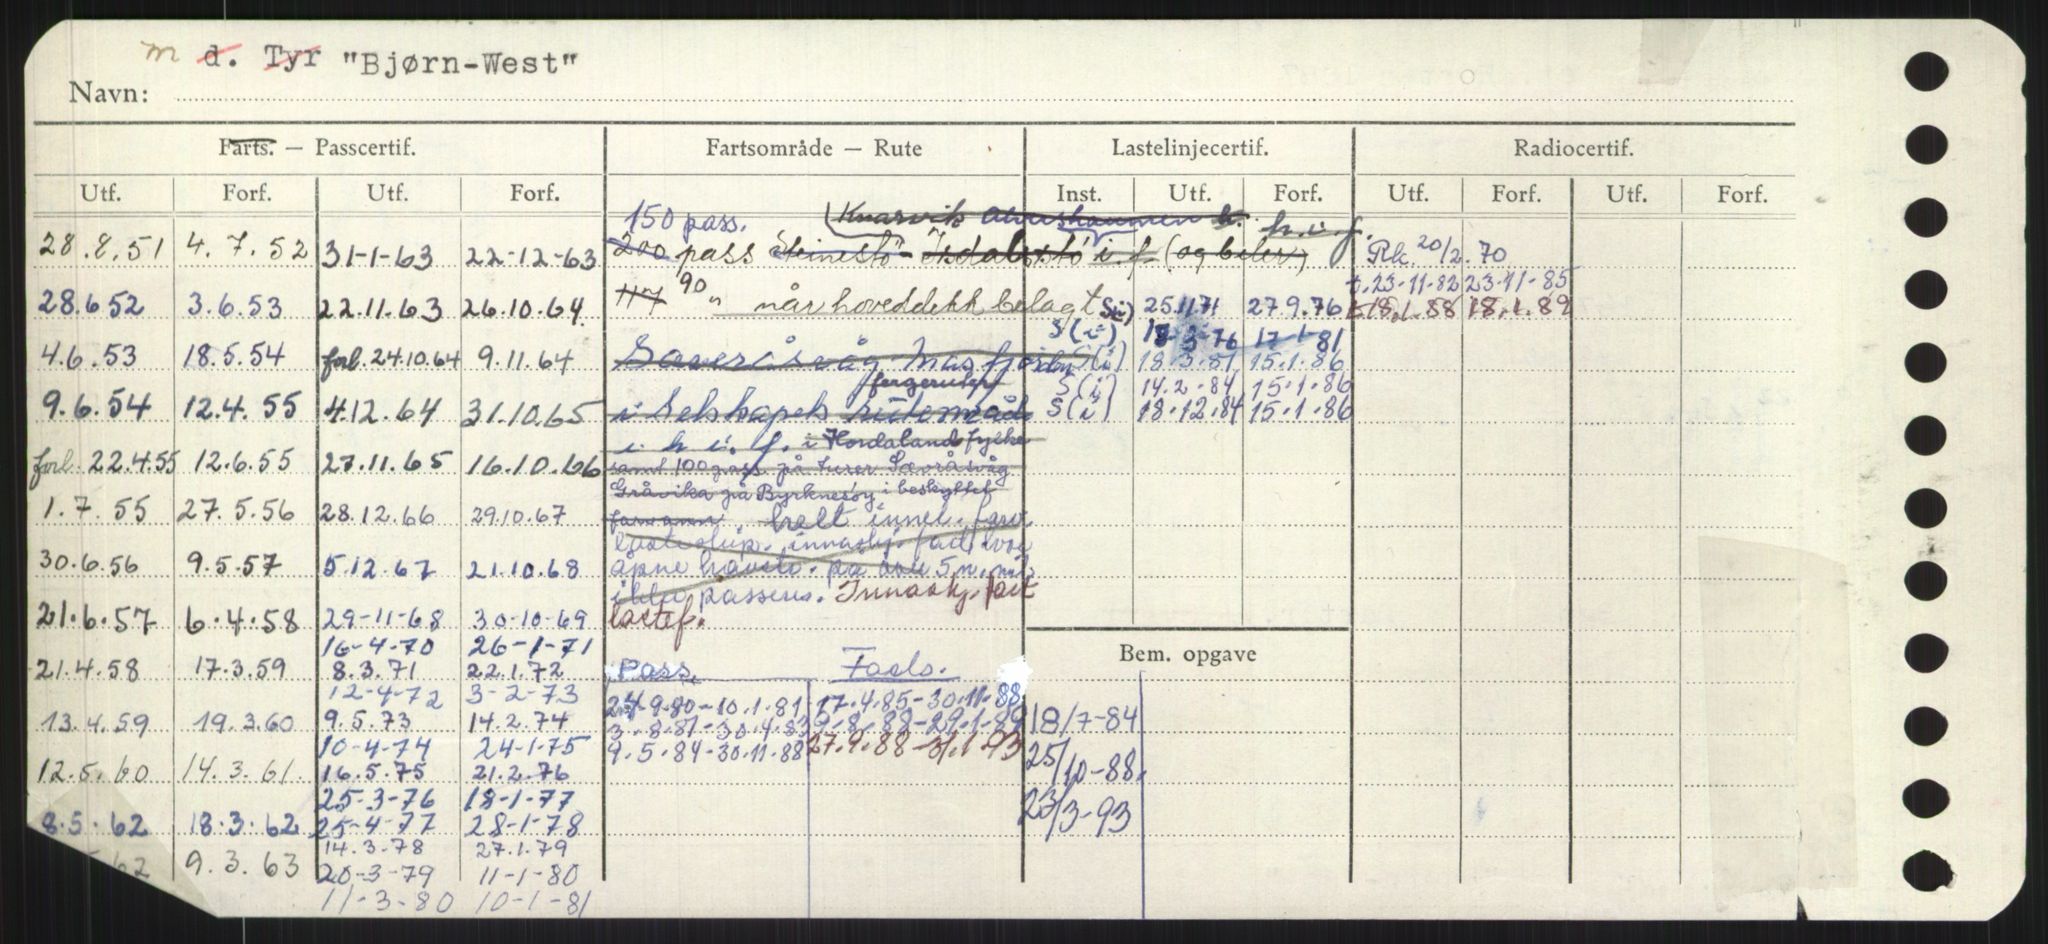 m d. Tyr "Bjørn-West"
Navn:
Farts. — Passcertif. Fartsområde — Rute Lastelinjecertif. Radiocertif.
Utf. Forf. Utf. Forf. Inst. Utf. Forf. Utf. Forf. Utf. Forf.
150 pass. (Knarvik h. h.i.f.
28.8.51 4.7.52 31-1-63 22-12-63 200 pass Steinestö - Isdalstö i.f. (og biler) Rk. 20/2.70
t.23-11-82 23-11-85
28.6.52 3.6.53 22.11.63 26.10.64. 117 90 " når hoveddekk belagt S(i) 25.11.71 27.9.76 t.18.1.88 18.1.89
S(i) 18-3-76 17-1-81
4.6.53 18.5.54 forl. 24.10.64 9.11.64 Sæveråsvåg Masfjorden S(i) 18.3.81 15.1.86
fergeruter S(i) 14.2.84 15.1.86
9.6.54 12.4.55 4.12.64 31.10.65 i Selskapets ruteområde S(i) 18.12.84 15.1.86
i h i. f. i Hordaland fylke
forl. 22.4.55 12.6.55 27.11.65 16.10.66 samt 100 pass. på turer Sævråsvåg
Gråvika på Byrknesöy i beskyttet
1.7.55 27.5.56 28.12.66 29.10.67 farvann. helt innel. farv
innaskj. fart
30.6.56 9.5.57 5.12.67 21.10.68 åpne havstr. på over 5 n. mil
ikke passeres. Innaskj. fart
21.6.57 6.4.58 29-11-68 30-10-69 lastef.
16-4-70 26-1-71
21.4.58 17.3.59 8.3.71 22.1.72 Pass. Fools. Bem. opgave
12-4-72 3-2-73
24.9.80-10.1.81 17.4.85-30.11.88
13.4.59 19.3.60 9.5.73 14.2.74 3.8.81-30.4.83 9.8.88-29.1.89 18/7-84
10-4-74 24-1-75 9.5.84-30.11.88 27.9.88-31.1.93
12.5.60 14.3.61. 16.5.75 21.2.76 25/10-88.
25-3-76 18-1-77
8.5.62 18.3.62 25-4-77 28-1-78 23/3-93
14.3.78 27.1.79
62 9.3.63 20-3-79 11-1-80
11-3-80 10-1-81